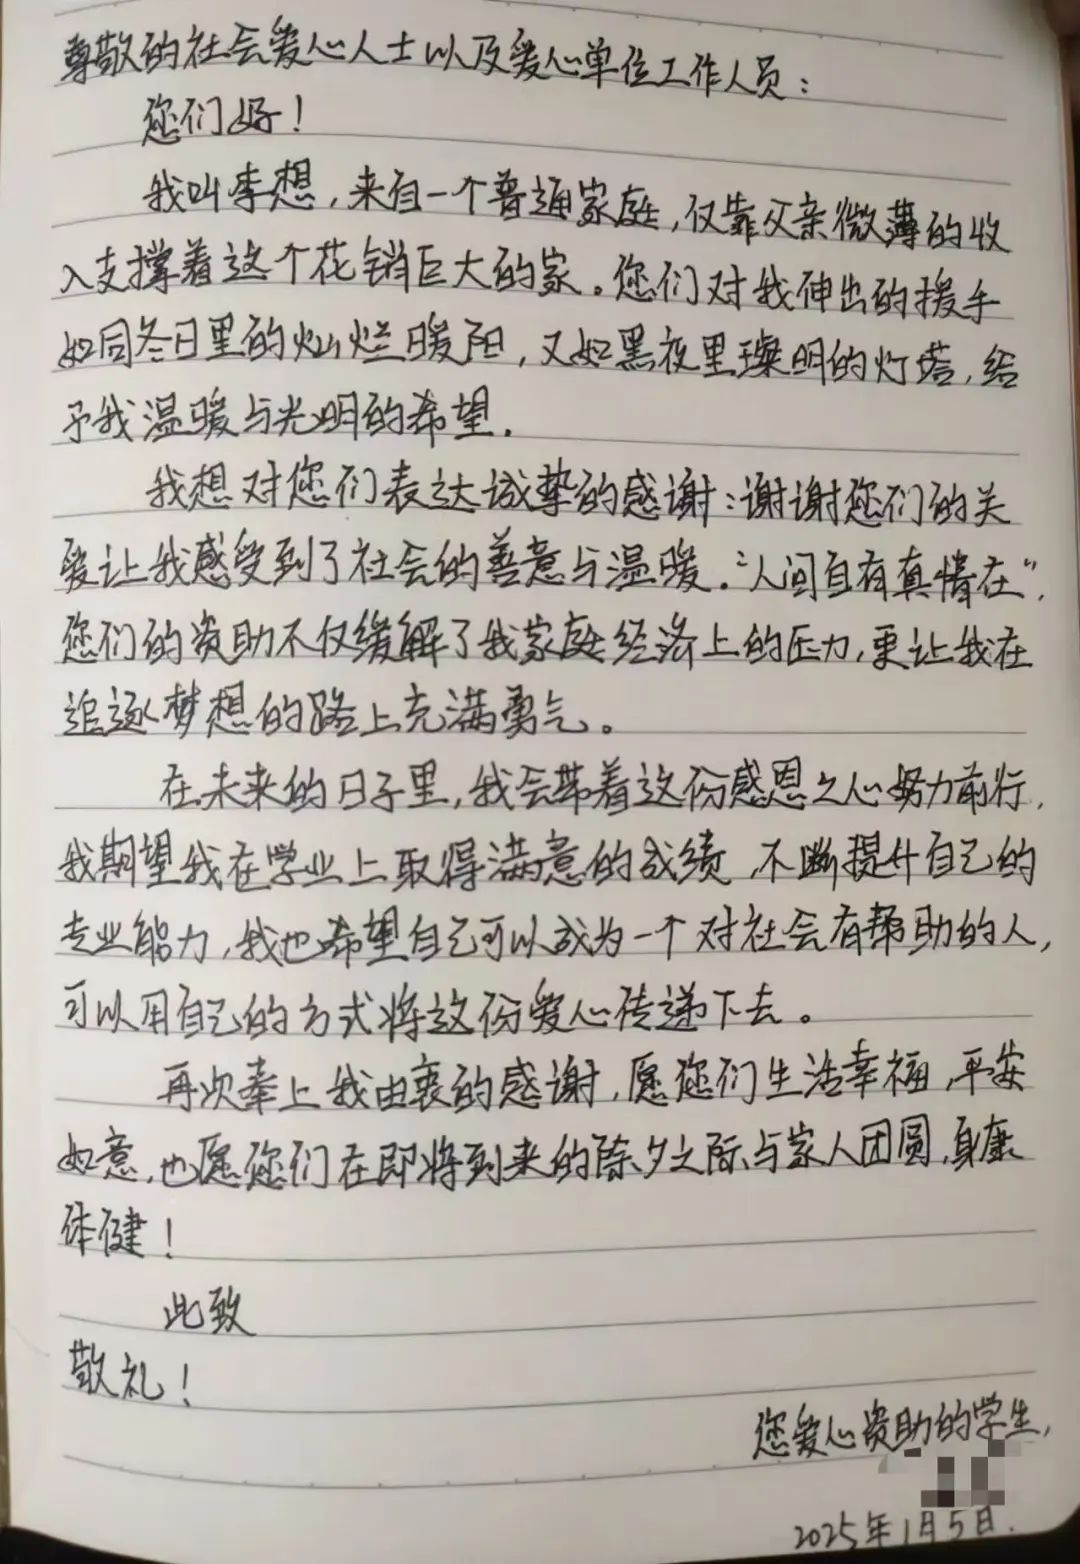 尊敬的社会爱心人士以及爱心单位工作人员：
您们好！
我叫李想，来自一个普通家庭，仅靠父亲微薄的收
入支撑着这个花销巨大的家。您们对我伸出的援手
如同冬日里的灿烂暖阳，又如黑夜里璨明的灯塔，给
予我温暖与光明的希望.
我想对您们表达诚挚的感谢：谢谢您们的关
爱让我感受到了社会的善意与温暖."人间自有真情在"，
您们的资助不仅缓解了我家庭经济上的压力，更让我在
追逐梦想的路上充满勇气。
在未来的日子里，我会带着这份感恩之心努力前行，
我期望我在学业上取得满意的成绩，不断提升自己的
专业能力，我也希望自己可以成为一个对社会有帮助的人，
可以用自己的方式将这份爱心传递下去。
再次奉上我由衷的感谢，愿您们生活幸福，平安
如意，也愿您们在即将到来的除夕之际与家人团圆，身康
体健！
此致
敬礼！
您爱心资助的学生，
2025年1月5日.